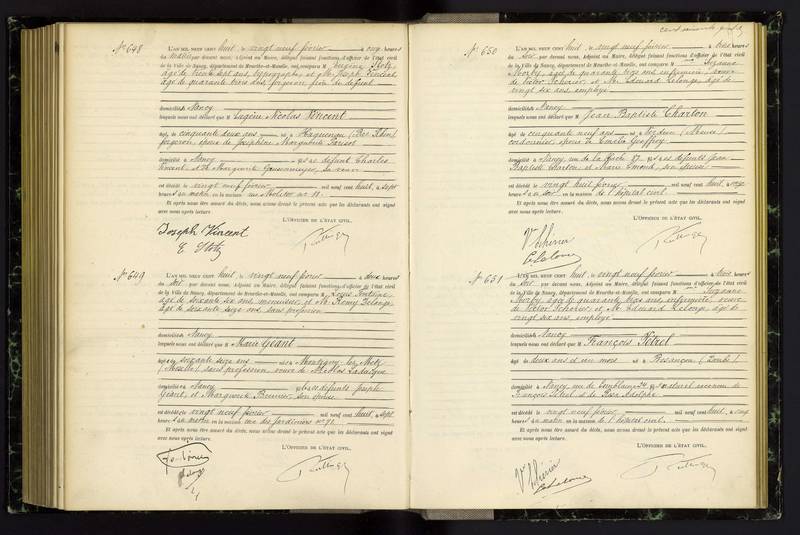 N° 648
L'AN MIL NEUF CENT huit, le vingt neuf février à onze heures
du matin, par devant nous, Adjoint au Maire, délégué faisant fonctions d'officier de l'état civil
de la Ville de Nancy, département de Meurthe-et-Moselle, ont comparu M. Eugène Stotz,
âgé de trente sept ans, typographe, et M. Joseph Vincent
âgé de quarante trois ans, forgeron, frère du défunt
domiciliés à Nancy
lesquels nous ont déclaré que M Eugène Nicolas Vincent
âgé de cinquante deux ans né à Haguenau (Bas Rhin)
forgeron époux de Joséphine Marguerite Parisot
domicilié à Nancy fils de défunt Charles
Vincent et de Marguerite sa veuve
est décédé le vingt neuf février mil neuf cent huit, à sept
heures du matin, en la maison rue Molitor n° 18.
Et après nous être assuré du décès, nous avons dressé le présent acte que les déclarants ont signé
avec nous après lecture.
L'OFFICIER DE L'ÉTAT CIVIL,
Joseph Vincent
E Stotz
N° 649
L'AN MIL NEUF CENT huit, le vingt neuf février à deux heures
du soir, par devant nous, Adjoint au Maire, délégué faisant fonctions d'officier de l'état civil
de la Ville de Nancy, département de Meurthe-et-Moselle, ont comparu M. Louis
âgé de soixante six ans, menuisier, et M. Rémy Delonge,
âgé de soixante seize ans sans profession
domiciliés à Nancy
lesquels nous ont déclaré que M Marie Géant
âgée de soixante seize ans née à Montigny les Metz
(Moselle) sans profession veuve de Nicolas
domiciliée à Nancy fille de défunts Joseph
Géant, et Marguerite son épouse
est décédée le vingt neuf février mil neuf cent huit, à sept
heures du matin, en la maison rue des Jardiniers n° 91.
Et après nous être assuré du décès, nous avons dressé le présent acte que les déclarants ont signé
avec nous après lecture.
L'OFFICIER DE L'ÉTAT CIVIL,
N° 650
L'AN MIL NEUF CENT huit, le vingt neuf février à trois heures
du soir, par devant nous, Adjoint au Maire, délégué faisant fonctions d'officier de l'état civil
de la Ville de Nancy, département de Meurthe-et-Moselle, ont comparu M Suzanne
âgée de quarante trois ans, infirmière, veuve
de Victor et M. Edouard Lelonge, âgé de
vingt six ans, employé
domiciliés à Nancy
lesquels nous ont déclaré que M Jean Baptiste Charton
âgé de cinquante neuf ans né à Verdun (Meuse)
cordonnier, époux de Emélie Geoffroy
domicilié à Nancy, rue de la 87 fils de défunts Jean
Baptiste Charton et Marie son épouse
est décédé le vingt neuf février mil neuf cent huit, à onze
heures du soir, en la maison de l'hôpital civil.
Et après nous être assuré du décès, nous avons dressé le présent acte que les déclarants ont signé
avec nous après lecture.
L'OFFICIER DE L'ÉTAT CIVIL,
N° 651
L'AN MIL NEUF CENT huit, le vingt neuf février à trois heures
du soir, par devant nous, Adjoint au Maire, délégué faisant fonctions d'officier de l'état civil
de la Ville de Nancy, département de Meurthe-et-Moselle, ont comparu M Suzanne
âgée de quarante trois ans, infirmière, veuve
de Victor et M. Edouard Lelonge, âgé de
vingt six ans, employé
domiciliés à Nancy
lesquels nous ont déclaré que François Petrel
âgé de deux ans et un mois né à Besançon (Doubs)
domicilié à Nancy, rue de fils naturel reconnu de
François Petrel et de Rose Adolphe
est décédé le vingt neuf février mil neuf cent huit, à cinq
heures du matin, en la maison de l'hôpital civil.
Et après nous être assuré du décès, nous avons dressé le présent acte que les déclarants ont signé
avec nous après lecture.
L'OFFICIER DE L'ÉTAT CIVIL,